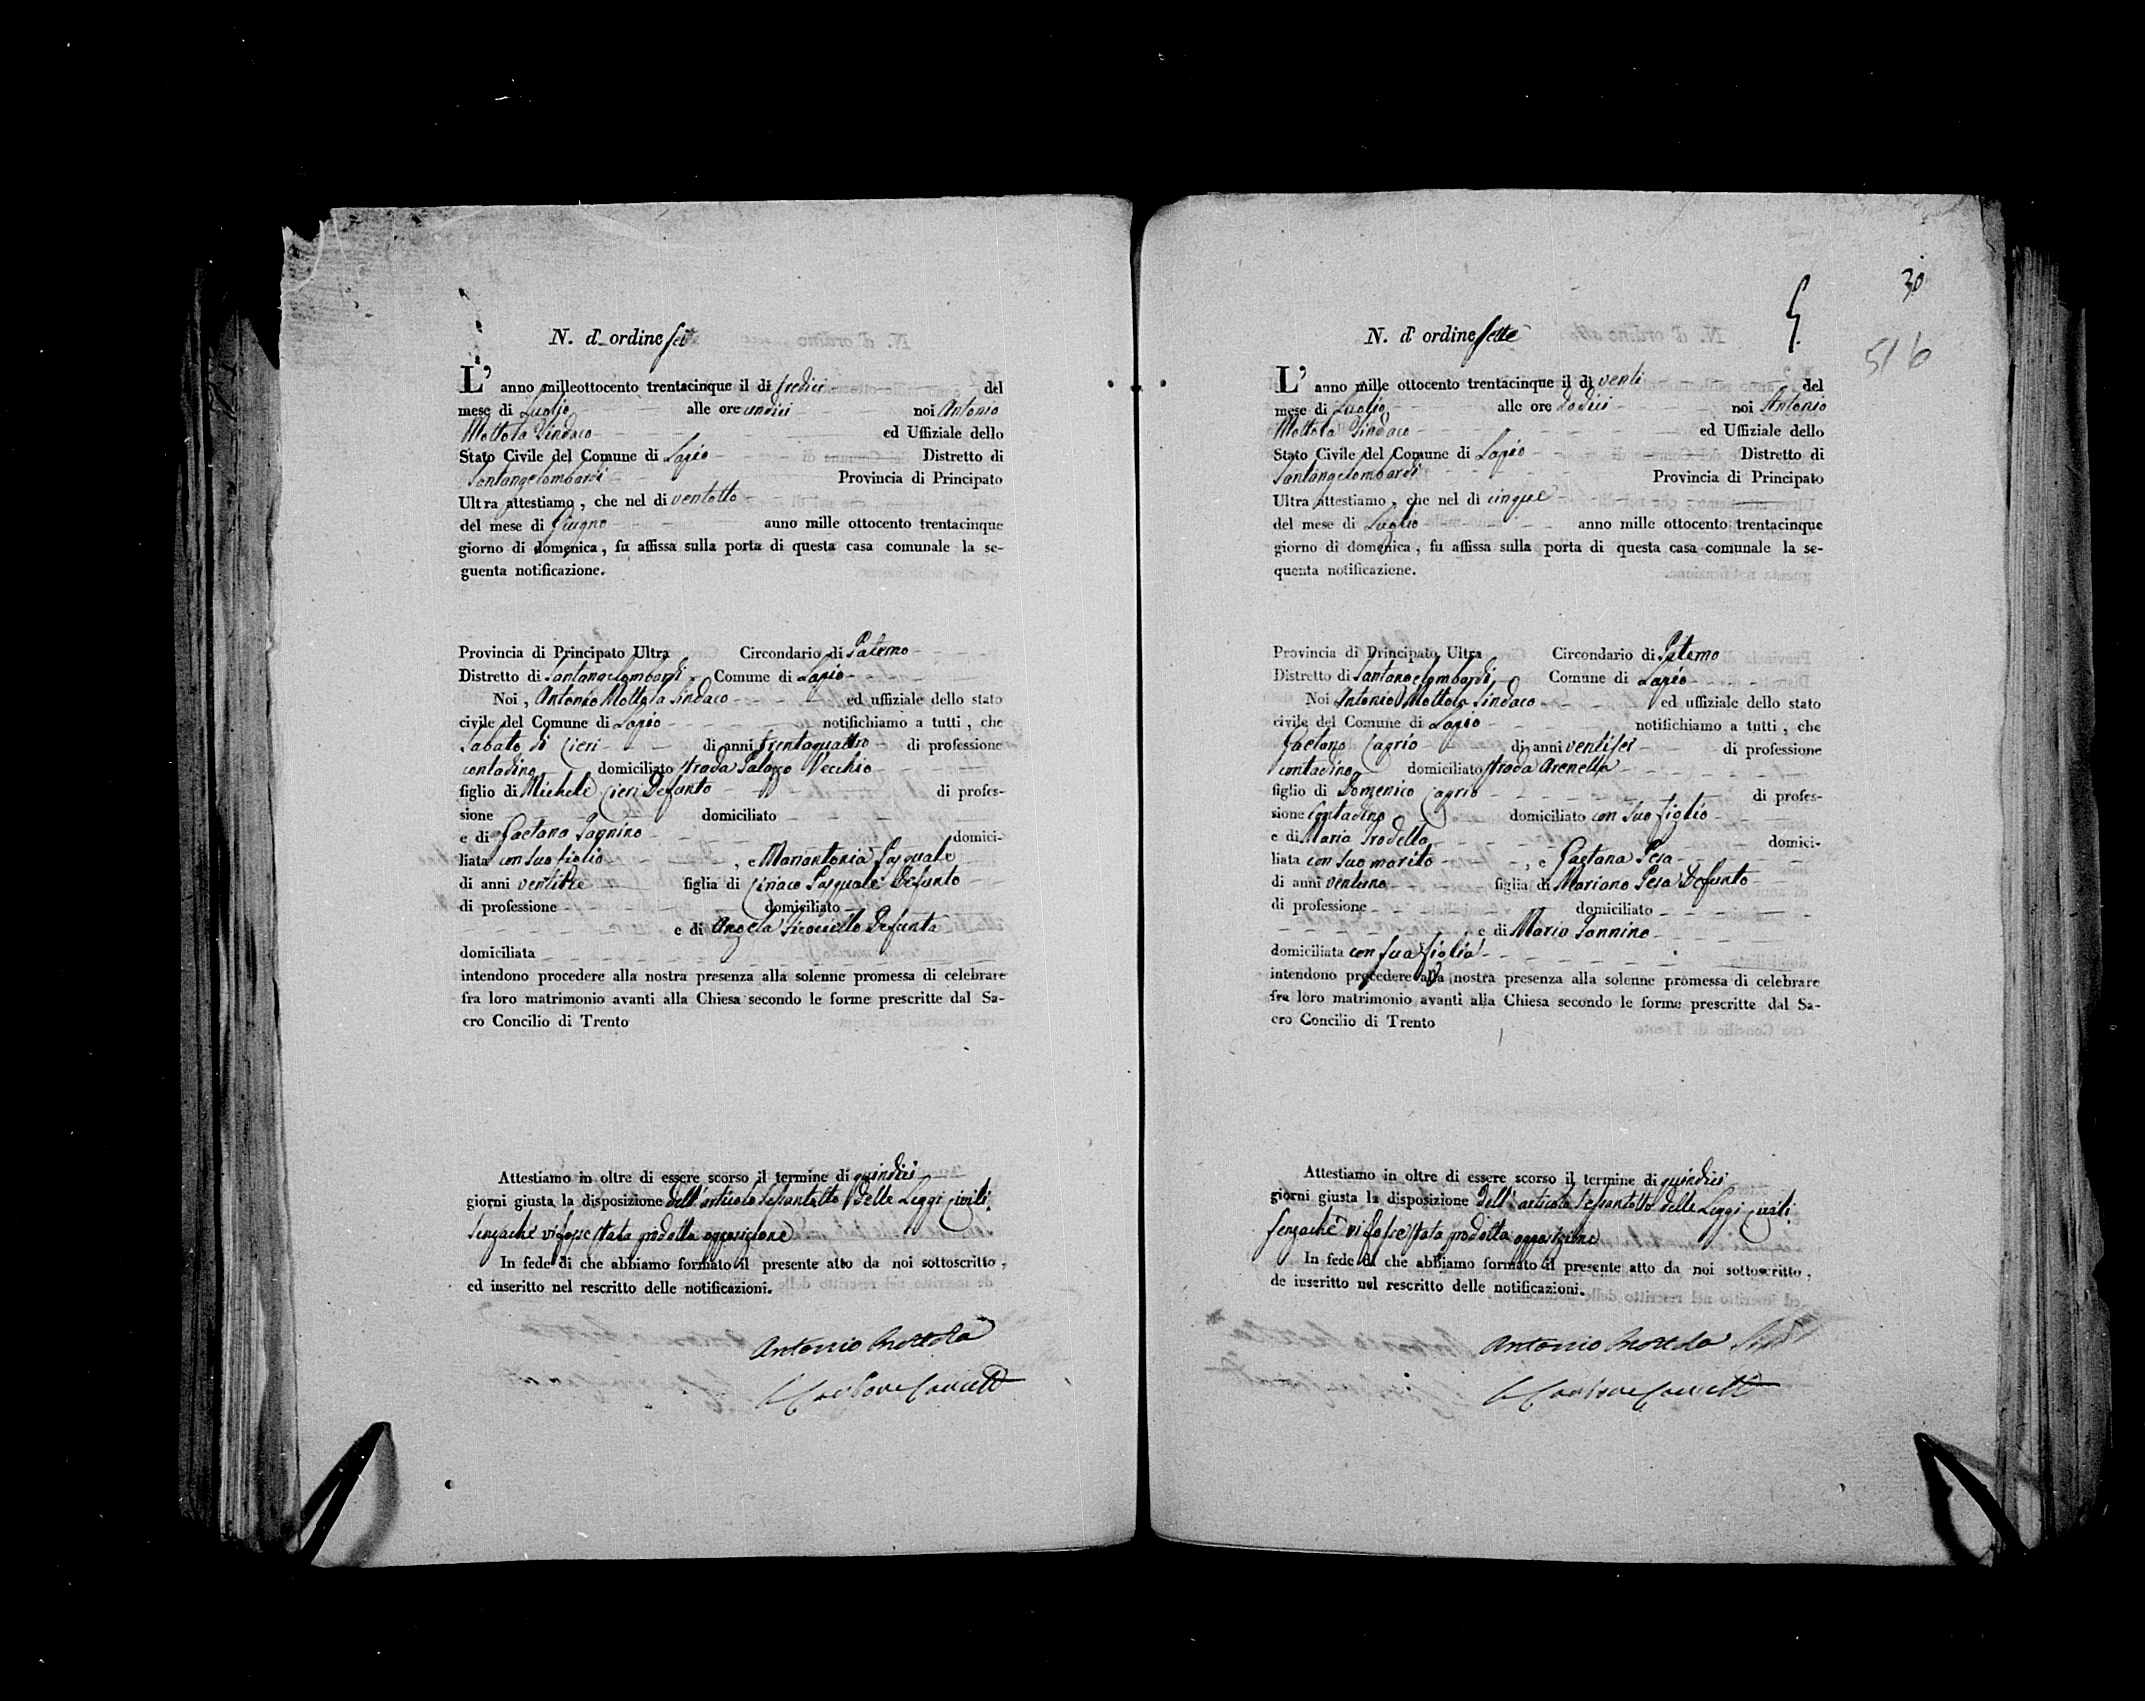 N. d' ordine Sei
L' anno milleottocento trentacinque il dì tredici del
mese di Luglio alle ore undici noi Antonio
Mottola Sindaco ed Uffiziale dello
Stato Civile del Comune di Lapio Distretto di
Santangelombardi Provincia di Principato
Ultra attestiamo, che nel dì ventotto
del mese di Giugno anno mille ottocento trentacinque
giorno di domenica, fu affissa sulla porta di questa casa comunale la se-
guenta notificazione.
Provincia di Principato Ultra Circondario di Paterno
Distretto di Santangelombardi Comune di Lapio
Noi, Antonio Mottola Sindaco ed uffiziale dello stato
civile del Comune di Lapio notifichiamo a tutti, che
Sabato di Cieri di anni trentaquattro di professione
contadino domiciliato strada Palazzo Vecchio
figlio di Michele Cieri Defunto di profes-
sione domiciliato
e di Gaetana Pagnino domici-
liata con suo figlio, e Mariantonia Pasquale
di anni ventitre figlia di Ciriaco Pasquale Defunto
di professione domiciliato
e di Angela Defunta
domiciliata
intendono procedere alla nostra presenza alla solenne promessa di celebrare
fra loro matrimonio avanti alla Chiesa secondo le forme prescritte dal Sa-
cro Concilio di Trento
Attestiamo in oltre di essere scorso il termine di quindici
giorni giusta la disposizione dell'articolo sessantotto delle Leggi Civili.
senzache vi fosse stata prodotta opposizione
In fede di che abbiamo formato il presente atto da noi sottoscritto,
ed inseritto nel rescritto delle notificazioni.
Antonio Mottola
30
516
N. d' ordine Sette
L' anno mille ottocento trentacinque il dì venti del
mese di Luglio alle ore dodici noi Antonio
Mottola Sindaco ed Uffiziale dello
Stato Civile del Comune di Lapio Distretto di
Santangelombardi Provincia di Principato
Ultra attestiamo, che nel dì cinque
del mese di Luglio anno mille ottocento trentacinque
giorno di domenica, fu affissa sulla porta di questa casa comunale la se-
quenta notificazione.
Provincia di Principato Ultra Circondario di Paterno
Distretto di Santangelombardi Comune di Lapio
Noi Antonio Mottola Sindaco ed uffiziale dello stato
civile del Comune di Lapio notifichiamo a tutti, che
Gaetano Caprio di anni ventisei di professione
contadino domiciliato strada Arenella
figlio di Domenico Caprio di profes-
sione Contadino domiciliato con suo figlio
e di Maria Trodella domici-
liata con suo marito, e Gaetana Pesa
di anni ventuno figlia di Mariano Pesa Defunto
di professione domiciliato
e di Maria Iannino
domiciliata con sua figlia
intendono procedere alla nostra presenza alla solenne promessa di celebrare
fra loro matrimonio avanti alla Chiesa secondo le forme prescritte dal Sa-
cro Concilio di Trento
Attestiamo in oltre di essere scorso il termine di quindici
giorni giusta la disposizione dell'articolo sessantotto delle Leggi Civili.
senzache vi fosse stata prodotta opposizione
In fede di che abbiamo formato il presente atto da noi sottoscritto,
de inseritto nel rescritto delle notificazioni.
Antonio Mottola